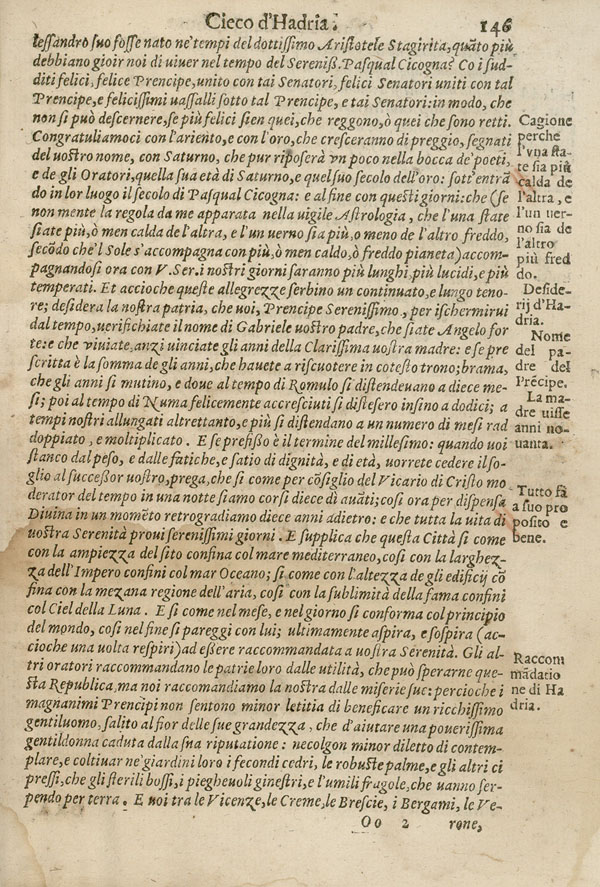 Cieco d'Hadria.
146
lessandro suo fosse nato ne' tempi del dottissimo Aristotele Stagirita, quãto più
debbiano gioir noi di uiuer nel tempo del Sereniß. Pasqual Cicogna? Co i sud-
diti felici, felice Prencipe, unito con tai Senatori, felici Senatori uniti con tal
Prencipe, e felicissimi uassalli sotto tal Prencipe, e tai Senatori: in modo, che
non si può descernere, se più felici sien quei, che reggono, ò quei che sono retti.
Congratuliamoci con l'ariento, e con l'oro, che cresceranno di preggio, segnati
del uostro nome, con Saturno, che pur riposerà vn poco nella bocca de' poeti,
e de gli Oratori, quella sua età di Saturno, e quel suo secolo dell'oro: sott'entrã
do in lor luogo il secolo di Pasqual Cicogna: e al fine con questi giorni: che (se
non mente la regola da me apparata nella uigile Astrologia, che l'una state
sia te più, ò men calda de l'altra, e l'un uerno sia più, o meno de l'altro freddo,
secõdo che'l Sole s'accompagna con più, ò men caldo, ò freddo pianeta) accom-
pagnandosi ora con V. Ser. i nostri giorni saranno più lunghi, più lucidi, e più
temperati. Et accioche queste allegrezze serbino un continuato, e lungo teno-
re; desidera la nostra patria, che uoi, Prencipe Serenissimo, per ischermirui
dal tempo, uerifichiate il nome di Gabriele uostro padre, che siate Angelo for
te: e che viuiate, anzi uinciate gli anni della Clarissima uostra madre: e se pre
scritta è la somma de gli anni, che hauete a riscuotere in cotesto trono; brama,
che gli anni si mutino, e doue al tempo di Romulo si distendeuano a diece me-
si; poi al tempo di Numa felicemente accresciuti si distesero insino a dodici; a
tempi nostri allungati altrettanto, e più si distendano a un numero di mesi rad
doppiato, e moltiplicato. E se prefißo è il termine del millesimo: quando uoi
stanco dal peso, e dalle fatiche, e satio di dignità, e di età, uorrete cedere il so-
glio al successor uostro, prega, che si come per cõsiglio del Vicario di Cristo mo
derator del tempo in una notte siamo corsi diece dì auãti; cosi ora per dispensa
Diuina in un momẽto retrogradiamo diece anni adietro: e che tutta la uita di
uostra Serenità proui serenissimi giorni. E supplica che questa Città si come
con la ampiezza del sito confina col mare mediterraneo, cosi con la larghez-
za dell'Impero confini col mar Oceano; si come con l'altezza de gli edificij cõ
fina con la mezana regione dell'aria, cosi con la sublimità della fama confini
col Ciel della Luna. E si come nel mese, e nel giorno si conforma col principio
del mondo, cosi nel fine si pareggi con lui; ultimamente aspira, e sospira (ac-
cioche una uolta respiri) ad essere raccommandata a uostra Serenità. Gli al-
tri oratori raccommandano le patrie loro dalle utilità, che può sperarne que-
sta Republica, ma noi raccomandiamo la nostra dalle miserie sue: percioche i
magnanimi Prencipi non sentono minor letitia di beneficare un ricchissimo
gentiluomo, salito al fior delle sue grandezza, che d'aiutare una pouerissima
gentildonna caduta dalla sua riputatione: ne colgon minor diletto di contem-
plare, e coltiuar ne' giardini loro i fecondi cedri, le robuste palme, e gli altri ci
pressi, che gli sterili bossi, i piegheuoli ginestri, e l'umili fragole, che uanno ser-
pendo per terra. E noi tra le Vicenze, le Creme, le Brescie, i Bergami, le Ve-
Oo 2 rone,
Cagione
perche
l'vna sta-
te sia più
calda de
l'altra, e
l'un uer-
no sia de
l'altro
più fred
do.
Deside-
rij d'Ha-
dria.
Nome
del pa-
dre del
Prẽcipe.
La ma-
dre uisse
anni no-
uanta.
Tutto fà
a suo pro
posito e
bene.
Raccom
mãdatio
ne di Ha
dria.